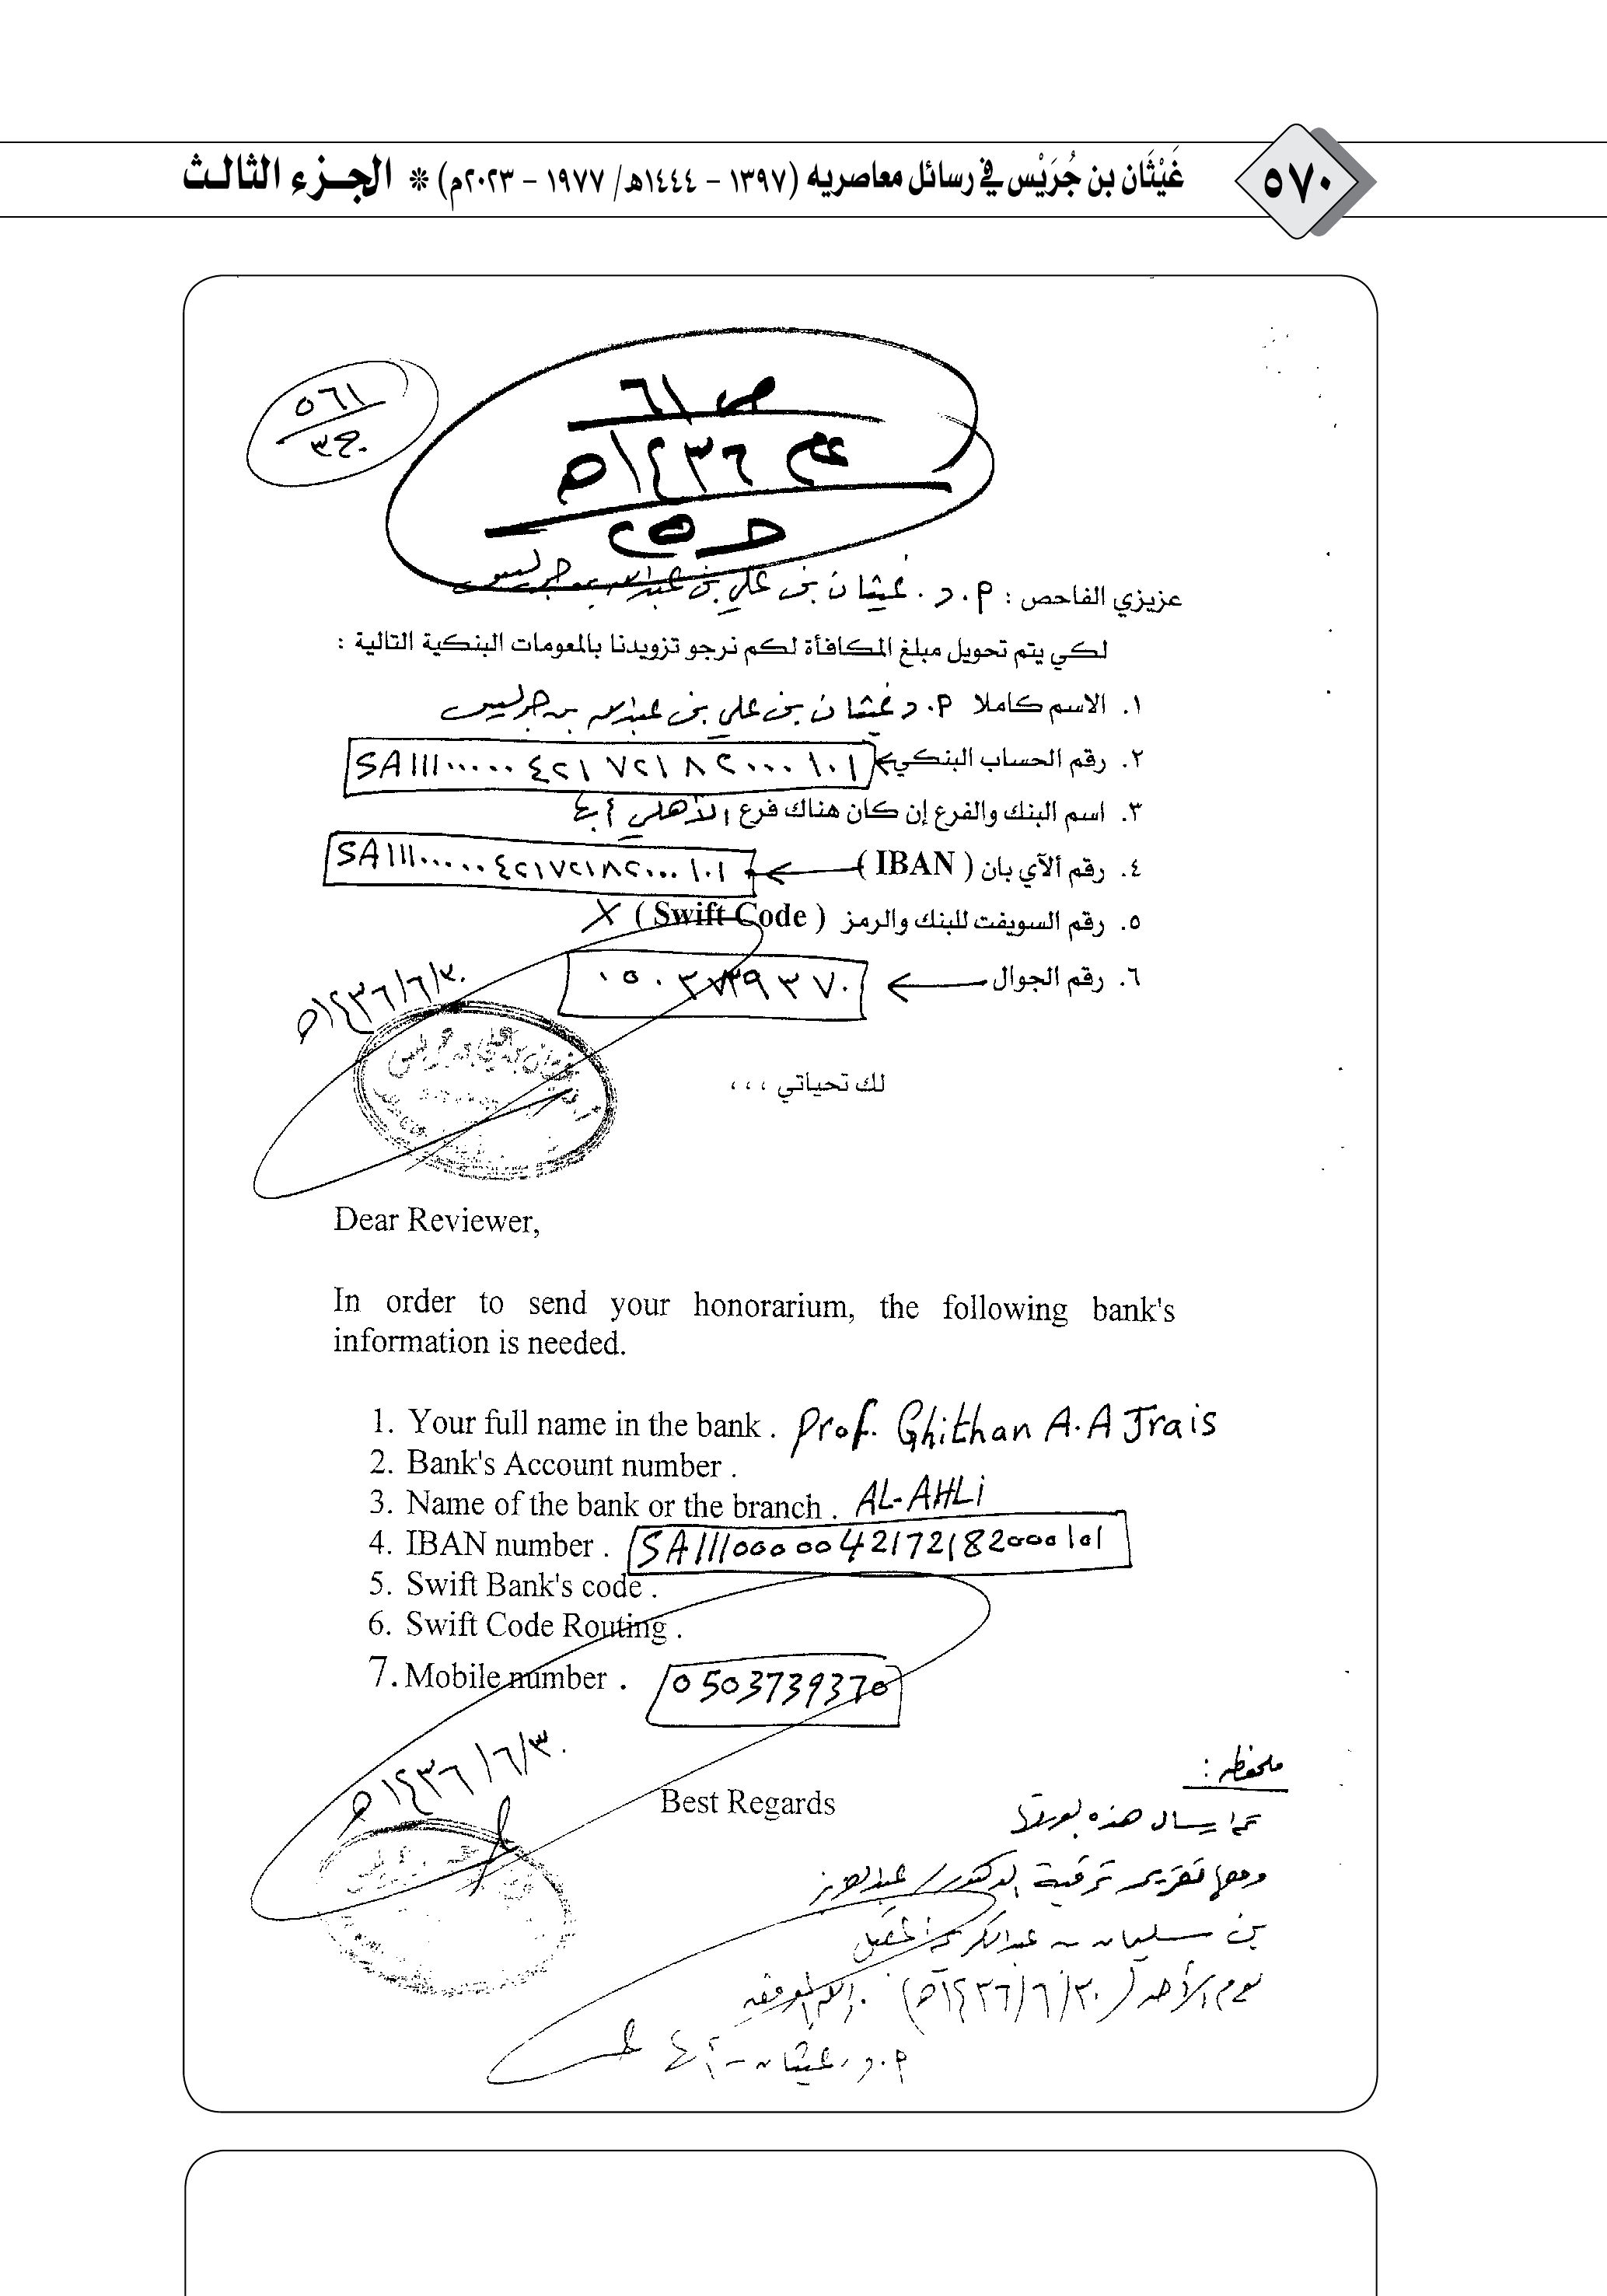 ٥٧٠
غَيْثَان بن جُرَيْس في رسائل معاصريه (١٣٩٧ - ١٤٤٤هـ/ ١٩٧٧ - ٢٠٢٣م) * الجزء الثالث
٥٦١
ج٣
ص ٦١
عام ١٤٣٦هـ
عزيزي الفاحص : أ.د . غيثان بن علي بن عبدالله بن جريس
لكي يتم تحويل مبلغ المكافأة لكم نرجو تزويدنا بالمعومات البنكية التالية :
١. الاسم كاملا أ.د غيثان بن علي بن عبدالله بن جريس
٢. رقم الحساب البنكي SA١١١٠٠٠٠٠٤٢١٧٢١٨٢٠٠٠١٠١
٣. اسم البنك والفرع إن كان هناك فرع الأهلي أبها
٤. رقم ألآي بان ( IBAN ) SA١١١٠٠٠٠٠٤٢١٧٢١٨٢٠٠٠١٠١
٥. رقم السويفت للبنك والرمز ( Swift Code ) X
٦. رقم الجوال ٠٥٠٣٧٣٩٣٧٠
١٤٣٦/٦/٣٠هـ
لك تحياتي ،،،
Dear Reviewer,
In order to send your honorarium, the following bank's
information is needed.
1. Your full name in the bank . Prof. Ghithan A.A Jrais
2. Bank's Account number .
3. Name of the bank or the branch . AL-AHLi
4. IBAN number . SA1110000042172182000101
5. Swift Bank's code .
6. Swift Code Routing .
7. Mobile number . 0503739370
١٤٣٦/٦/٣٠هـ
Best Regards
ملحظه :
تم ارسال هذه الورقة
ومعها تقرير ترقية الدكتور/ عبدالعزيز
بن سليمان بن عبدالكريم المقبل
يوم الأحد (١٤٣٦/٦/٣٠هـ) . والله الموفق
أ.د. غيثان -